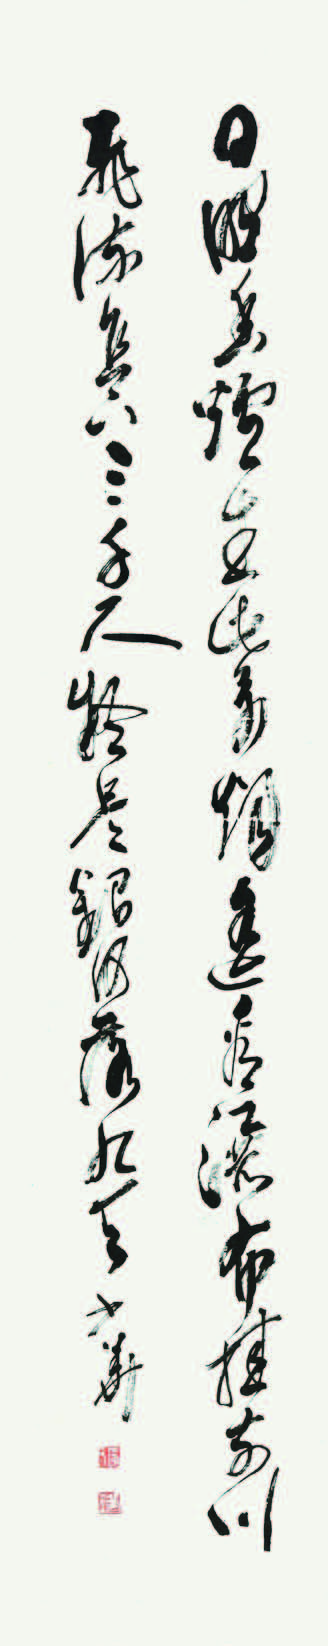 日照香爐生紫烟遙看瀑布挂前川
飛流直下三千尺疑是銀河落九天